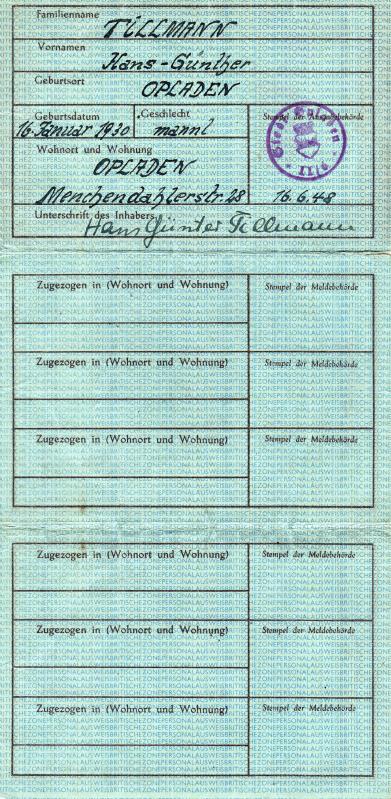 Familienname
TILLMANN
Vornamen
Hans-Günther
Geburtsort
OPLADEN
Geburtsdatum Geschlecht Stempel der Ausgabebehörde
16. Januar 1930 männl
Wohnort und Wohnung
OPLADEN
Menchendahlerstr. 28 16.6.48
Unterschrift des Inhabers
Hans Günter Tillmann
Zugezogen in (Wohnort und Wohnung) Stempel der Meldebehörde
Zugezogen in (Wohnort und Wohnung) Stempel der Meldebehörde
Zugezogen in (Wohnort und Wohnung) Stempel der Meldebehörde
Zugezogen in (Wohnort und Wohnung) Stempel der Meldebehörde
Zugezogen in (Wohnort und Wohnung) Stempel der Meldebehörde
Zugezogen in (Wohnort und Wohnung) Stempel der Meldebehörde